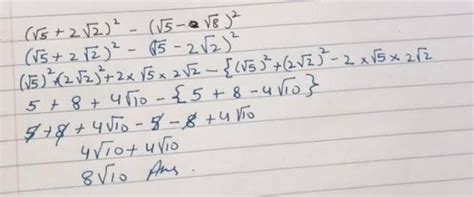 (√5 + 2√2)² - (√5 - √8)²
(√5 + 2√2)² - (√5 - 2√2)²
(√5)² + (2√2)² + 2 × √5 × 2√2 - {(√5)² + (2√2)² - 2 × √5 × 2√2
5 + 8 + 4√10 - {5 + 8 - 4√10}
5 + 8 + 4√10 - 5 - 8 + 4√10
4√10 + 4√10
8√10 Ans.